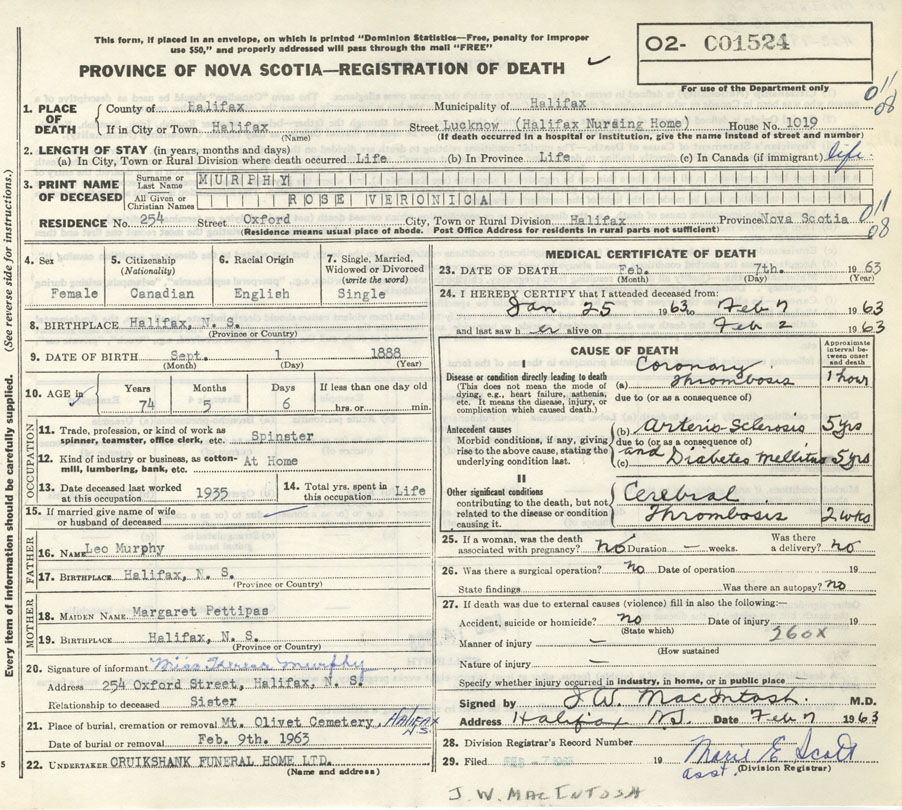 This form, if placed in an envelope, on which is printed "Dominion Statistics—Free, penalty for improper
use $50," and properly addressed will pass through the mail "FREE"
PROVINCE OF NOVA SCOTIA—REGISTRATION OF DEATH
O2- C01524
For use of the Department only
011
08
1. PLACE OF DEATH
County of Halifax Municipality of Halifax
If in City or Town Halifax Street Lucknow (Halifax Nursing Home) House No. 1019
(Name) (If death occurred in a hospital or institution, give the name instead of street and number)
2. LENGTH OF STAY (in years, months and days)
(a) In City, Town or Rural Division where death occurred Life (b) In Province Life (c) In Canada (if immigrant) life
3. PRINT NAME OF DECEASED
Surname or Last Name MURPHY
All Given or Christian Names ROSE VERONICA
RESIDENCE No. 254 Street Oxford City, Town or Rural Division Halifax Province Nova Scotia
(Residence means usual place of abode. Post Office Address for residents in rural parts not sufficient)
011
08
(See reverse side for instructions.)
Every item of information should be carefully supplied.
4. Sex
Female
5. Citizenship
(Nationality)
Canadian
6. Racial Origin
English
7. Single, Married, Widowed or Divorced
(write the word)
Single
8. BIRTHPLACE Halifax, N. S.
(Province or Country)
9. DATE OF BIRTH Sept. 1 1888
(Month) (Day) (Year)
10. AGE in
Years Months Days If less than one day old
74 5 6 hrs. or min.
OCCUPATION
11. Trade, profession, or kind of work as
spinner, teamster, office clerk, etc. Spinster
12. Kind of industry or business, as cotton-
mill, lumbering, bank, etc. At Home
13. Date deceased last worked
at this occupation 1935
14. Total yrs. spent in
this occupation Life
15. If married give name of wife
or husband of deceased
FATHER
16. NAME Leo Murphy
17. BIRTHPLACE Halifax, N. S.
(Province or Country)
MOTHER
18. MAIDEN NAME Margaret Pettipas
19. BIRTHPLACE Halifax, N. S.
(Province or Country)
20. Signature of informant Miss Theresa Murphy
Address 254 Oxford Street, Halifax, N. S.
Relationship to deceased Sister
21. Place of burial, cremation or removal Mt. Olivet Cemetery, HALIFAX N.S.
Date of burial or removal Feb. 9th. 1963
22. UNDERTAKER CRUIKSHANK FUNERAL HOME LTD.
(Name and address)
5
MEDICAL CERTIFICATE OF DEATH
23. DATE OF DEATH Feb. 7th. 1963
(Month) (Day) (Year)
24. I HEREBY CERTIFY that I attended deceased from:
Jan 25 1963 to Feb 7 1963
and last saw her alive on Feb 2 1963
CAUSE OF DEATH
Approximate interval between onset and death
I
Disease or condition directly leading to death
(This does not mean the mode of
dying, e.g., heart failure, asthenia,
etc. It means the disease, injury, or
complication which caused death.)
(a) Coronary Thrombosis 1 hour
due to (or as a consequence of)
Antecedent causes
Morbid conditions, if any, giving
rise to the above cause, stating the
underlying condition last.
(b) Arterio-Sclerosis 5 yrs
due to (or as a consequence of)
(c) and Diabetes Mellitus 5 yrs
II
Other significant conditions
contributing to the death, but not
related to the disease or condition
causing it.
Cerebral
Thrombosis 2 wks
25. If a woman, was the death
associated with pregnancy? no Duration — weeks. Was there a delivery? no
26. Was there a surgical operation? no Date of operation 19
State findings Was there an autopsy? no
27. If death was due to external causes (violence) fill in also the following:—
Accident, suicide or homicide? no Date of injury 19
(State which)
260X
Manner of injury —
(How sustained
Nature of injury —
Specify whether injury occurred in industry, in home, or in public place —
Signed by J.W. MacIntosh M.D.
Address Halifax NS. Date Feb 7 1963
28. Division Registrar's Record Number
29. Filed 19 Marie E Scott
asst. (Division Registrar)
J. W. MACINTOSH